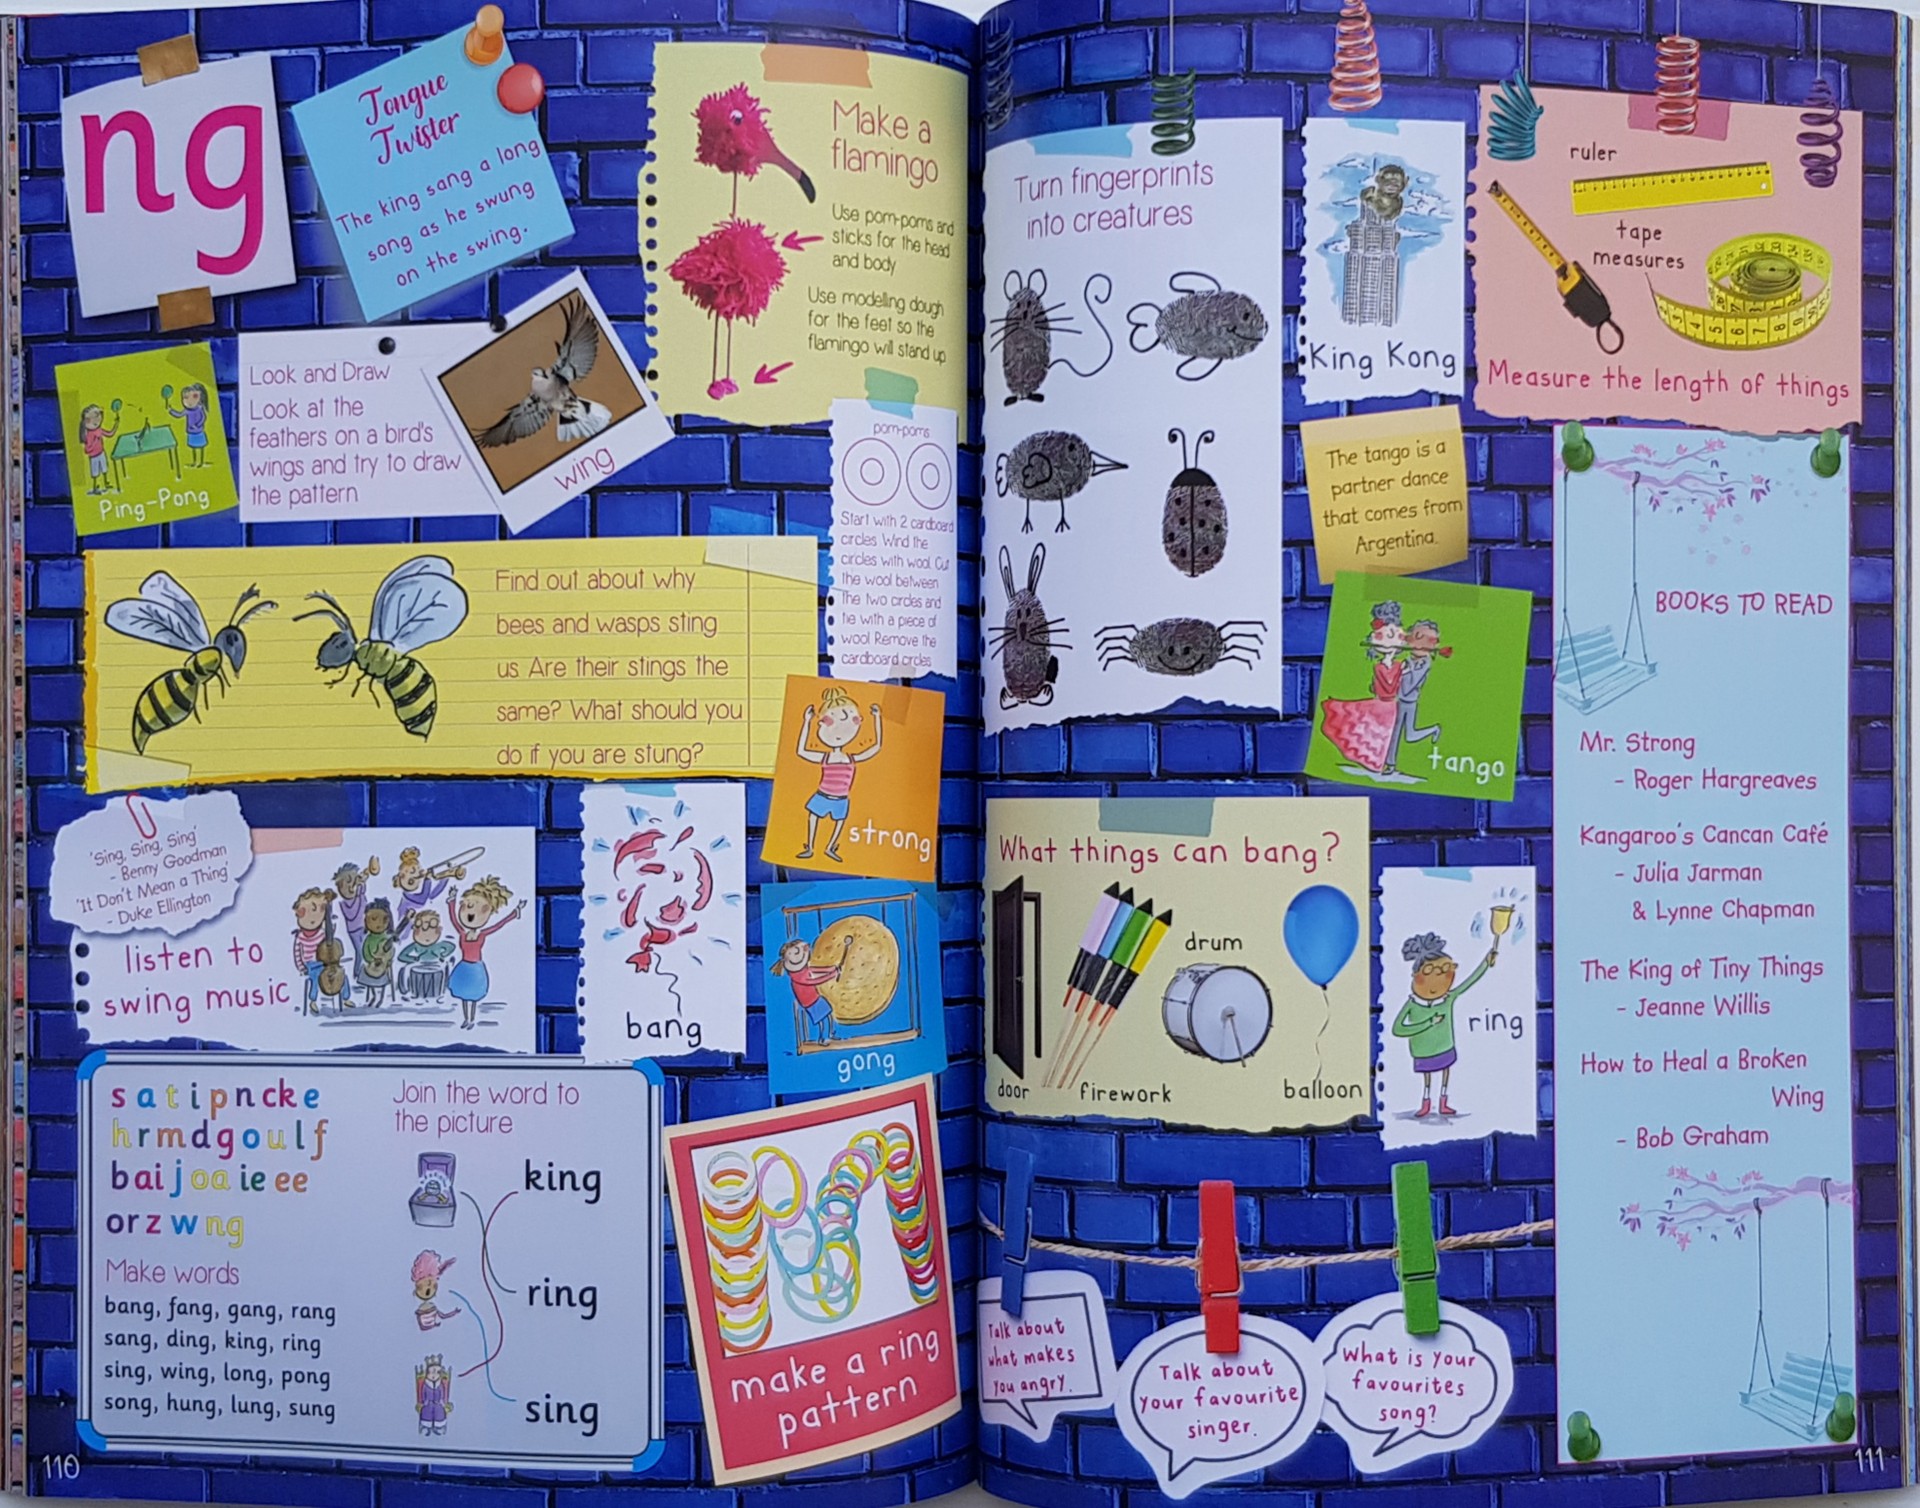 ng
Tongue
Twister
The king sang a long
song as he swung
on the swing.
Make a
flamingo
Use pom-poms and
sticks for the head
and body
Use modelling dough
for the feet so the
flamingo will stand up
Ping-Pong
Look and Draw
Look at the
feathers on a bird's
wings and try to draw
the pattern
wing
pom-poms
Start with 2 cardboard
circles Wind the
circles with wool Cut
the wool between
the two circles and
tie with a piece of
wool Remove the
cardboard circles
Find out about why
bees and wasps sting
us Are their stings the
same? What should you
do if you are stung?
strong
'Sing, Sing, Sing'
- Benny Goodman
'It Don't Mean a Thing'
- Duke Ellington
listen to
swing music
bang
gong
s a t i p n ck e
h r m d g o u l f
b ai j oa ie ee
or z w ng
Make words
bang, fang, gang, rang
sang, ding, king, ring
sing, wing, long, pong
song, hung, lung, sung
Join the word to
the picture
king
ring
sing
make a ring
pattern
110
Turn fingerprints
into creatures
King Kong
ruler
tape
measures
1 2 3 4 5 6 7 8 9
Measure the length of things
The tango is a
partner dance
that comes from
Argentina.
tango
What things can bang?
door
firework
drum
balloon
ring
BOOKS TO READ
Mr. Strong
- Roger Hargreaves
Kangaroo's Cancan Café
- Julia Jarman
& Lynne Chapman
The King of Tiny Things
- Jeanne Willis
How to Heal a Broken
Wing
- Bob Graham
Talk about
what makes
you angry.
Talk about
your favourite
singer.
What is your
favourites
song?
111